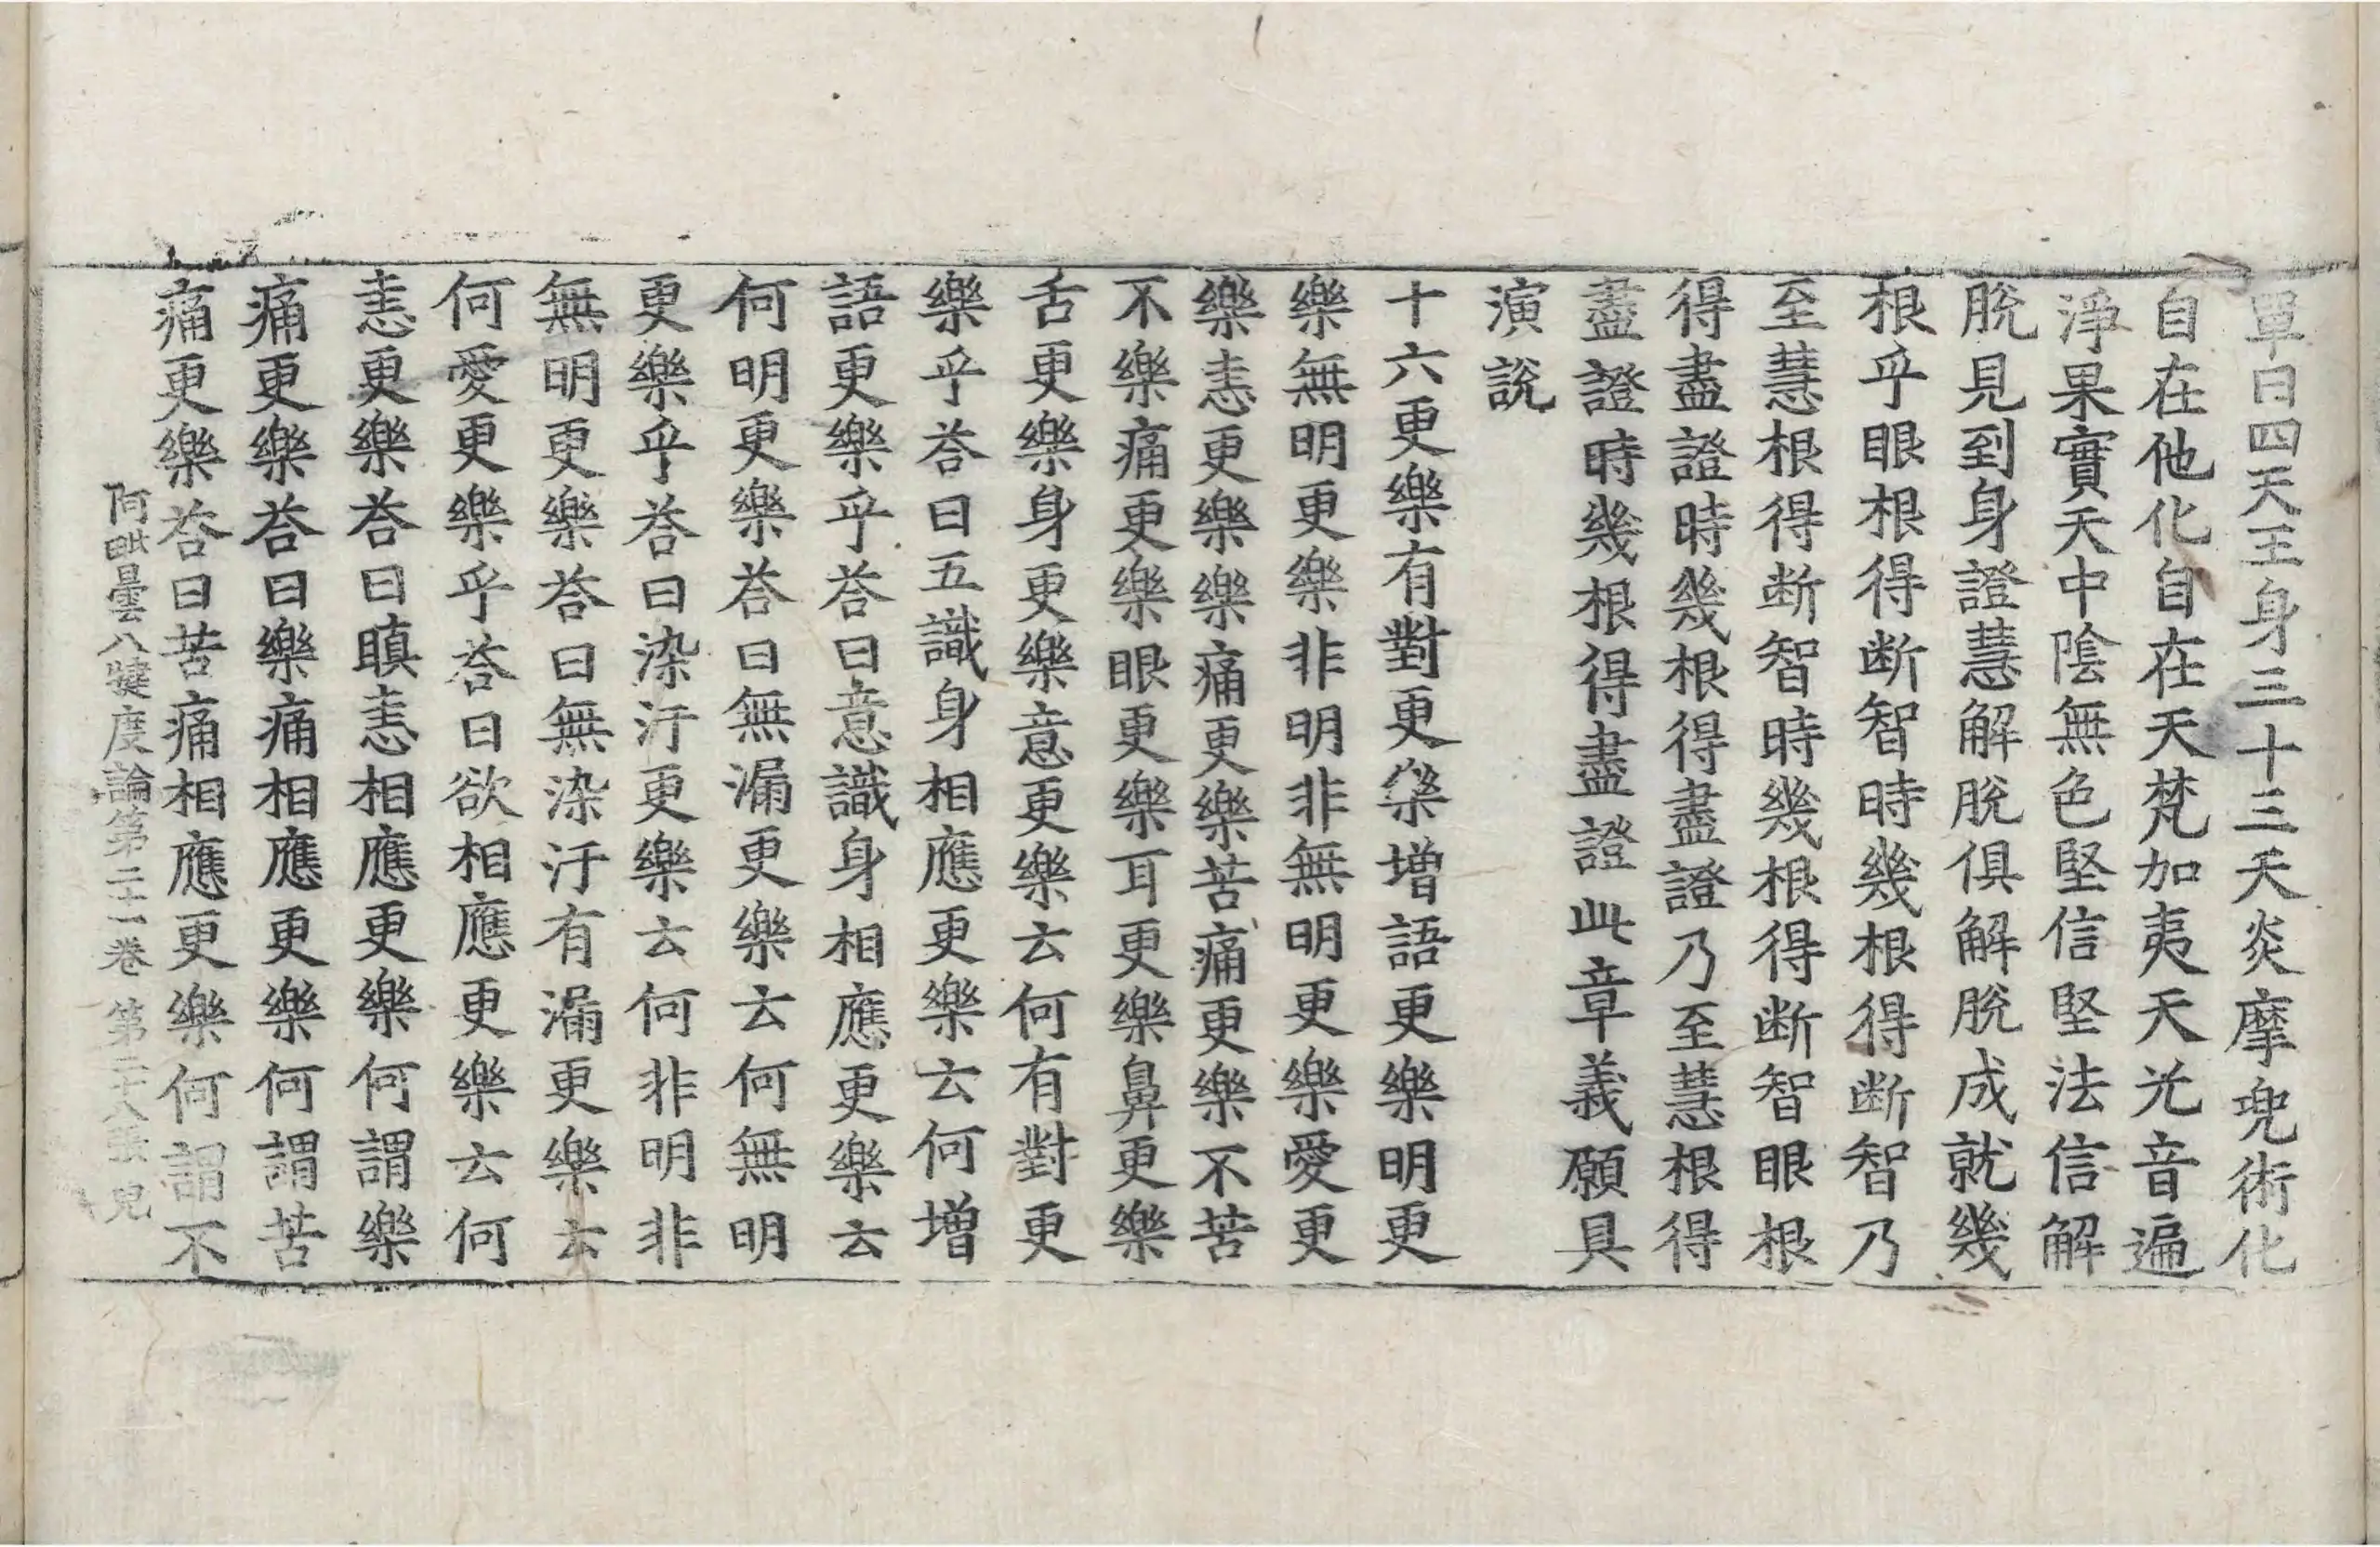 單曰四天王身三十三天炎摩兜術化
自在他化自在天梵加夷天光音遍
淨果實天中陰無色堅信堅法信解
脫見到身證慧解脫俱解脫成就幾
根乎眼根得断智時幾根得断智乃
至慧根得断智時幾根得断智眼根
得盡證時幾根得盡證乃至慧根得
盡證時幾根得盡證此章義願具
演說
十六更樂有對更樂增語更樂明更
樂無明更樂非明非無明更樂愛更
樂恚更樂樂痛更樂苦痛更樂不苦
不樂痛更樂眼更樂耳更樂鼻更樂
舌更樂身更樂意更樂云何有對更
樂乎荅曰五識身相應更樂云何增
語更樂乎荅曰意識身相應更樂云
何明更樂荅曰無漏更樂云何無明
更樂乎荅曰染汙更樂云何非明非
無明更樂荅曰無染汙有漏更樂云
何愛更樂乎荅曰欲相應更樂云何
恚更樂荅曰瞋恚相應更樂何謂樂
痛更樂荅曰樂痛相應更樂何謂苦
痛更樂荅曰苦痛相應更樂何謂不
阿毗曇八犍度論第二十一卷 第二十八張 皃